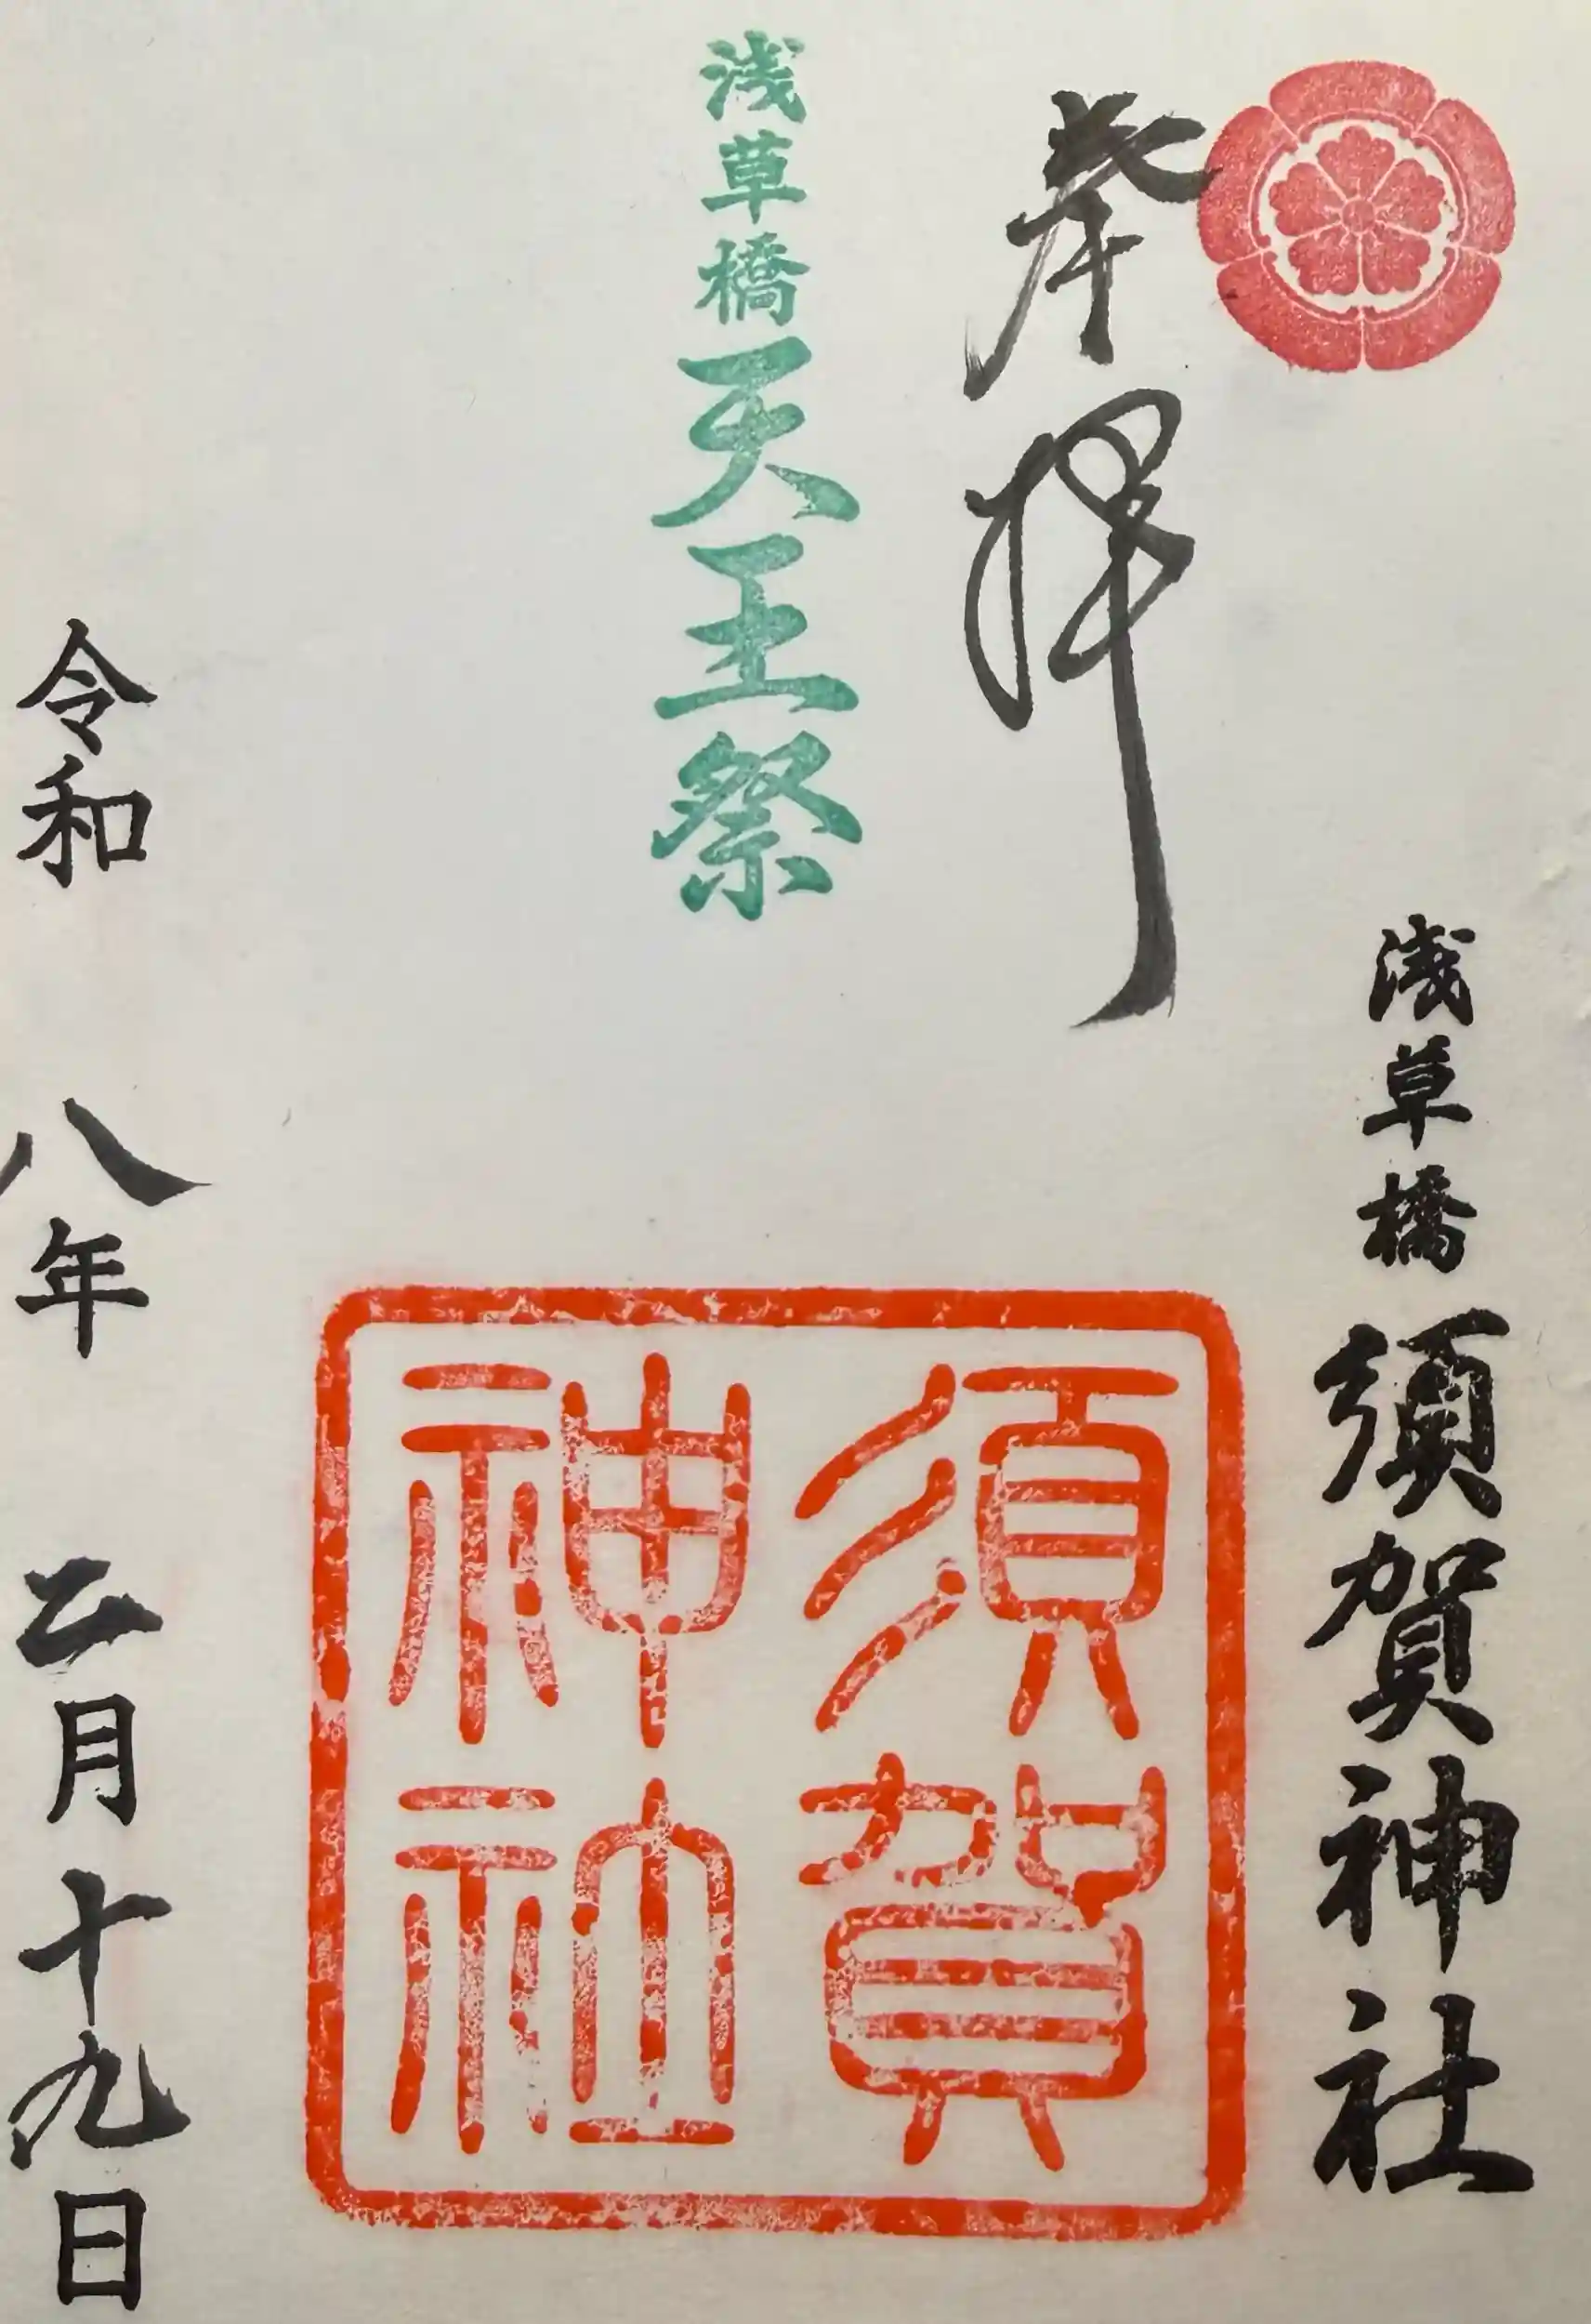 奉拝
浅草橋須賀神社
浅草橋天王祭
須賀神社
令和八年二月十九日